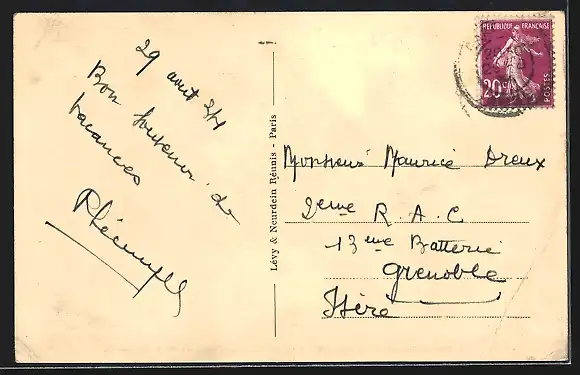 29 août 24
Bon souvenir de
vacances
Lévy & Neurdein Réunis - Paris
REPUBLIQUE FRANÇAISE
20c
POSTES
Monsieur Maurice Dreux
2eme R. A. C
13eme Batterie
Grenoble
Isère